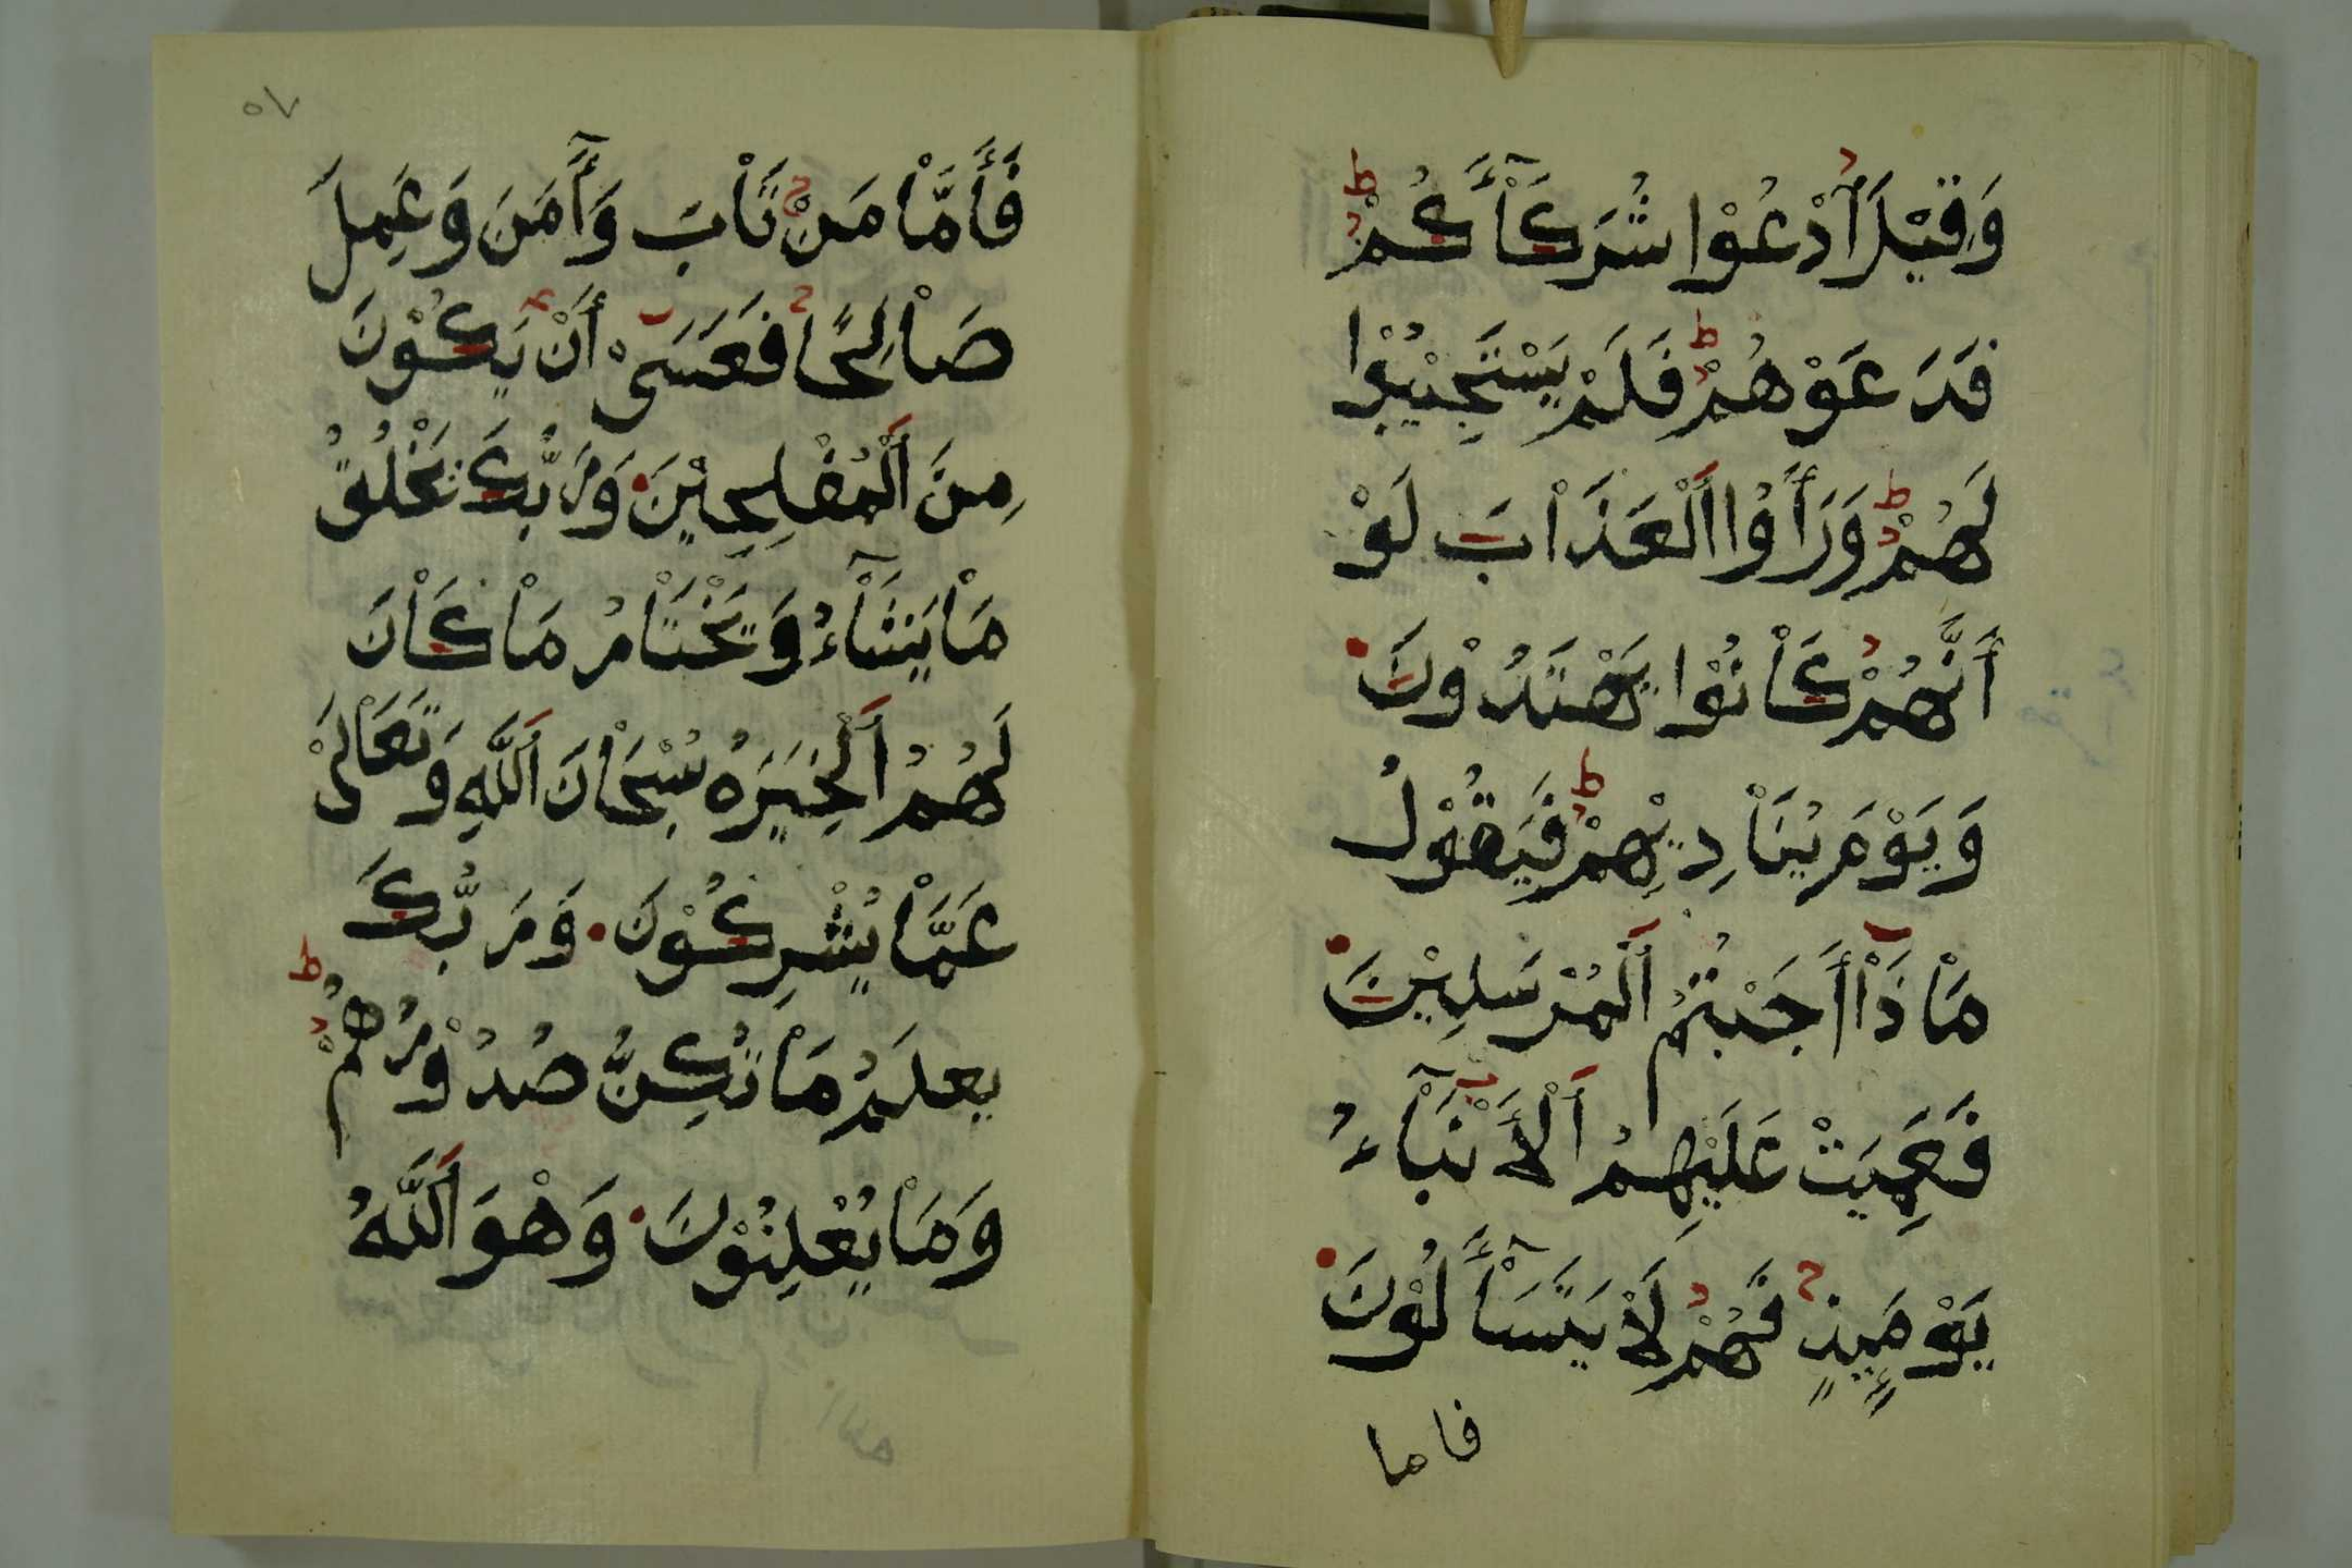 وَقِيْلَ اُدْعُوْا شُرَكَآءَكُمْ
فَدَعَوْهُمْ فَلَمْ يَسْتَجِيْبُوْا
لَهُمْ وَرَأَوُا اَلْعَذَاْبَ لَوْ
أَنَّهُمْ كَاْنُوْا يَهْتَدُوْنَ
وَيَوْمَ يُنَاْدِيْهِمْ فَيَقُوْلُ
مَاْذَاْ أَجَبْتُمُ اَلْمُرْسَلِيْنَ
فَعَمِيَتْ عَلَيْهِمُ اَلْأَنْبَآءُ
يَوْمَئِذٍ فَهُمْ لَاْ يَتَسَآءَلُوْنَ
فاما
٥٧
فَأَمَّاْ مَنْ تَاْبَ وَآمَنَ وَعَمِلَ
صَاْلِحًا فَعَسَىْ أَنْ يَكُوْنَ
مِنَ اَلْمُفْلِحِيْنَ وَرَبُّكَ يَخْلُقُ
مَاْ يَشَآءُ وَيَخْتَاْرُ مَاْ كَاْنَ
لَهُمُ اَلْخِيَرَةُ سُبْحَاْنَ اَللَّهِ وَتَعَاْلَىْ
عَمَّاْ يُشْرِكُوْنَ وَرَبُّكَ
يعلَمُ مَاْ تُكِنُّ صُدُوْرُهُمْ
وَمَاْ يُعْلِنُوْنَ وَهْوَ اَللَّهُ